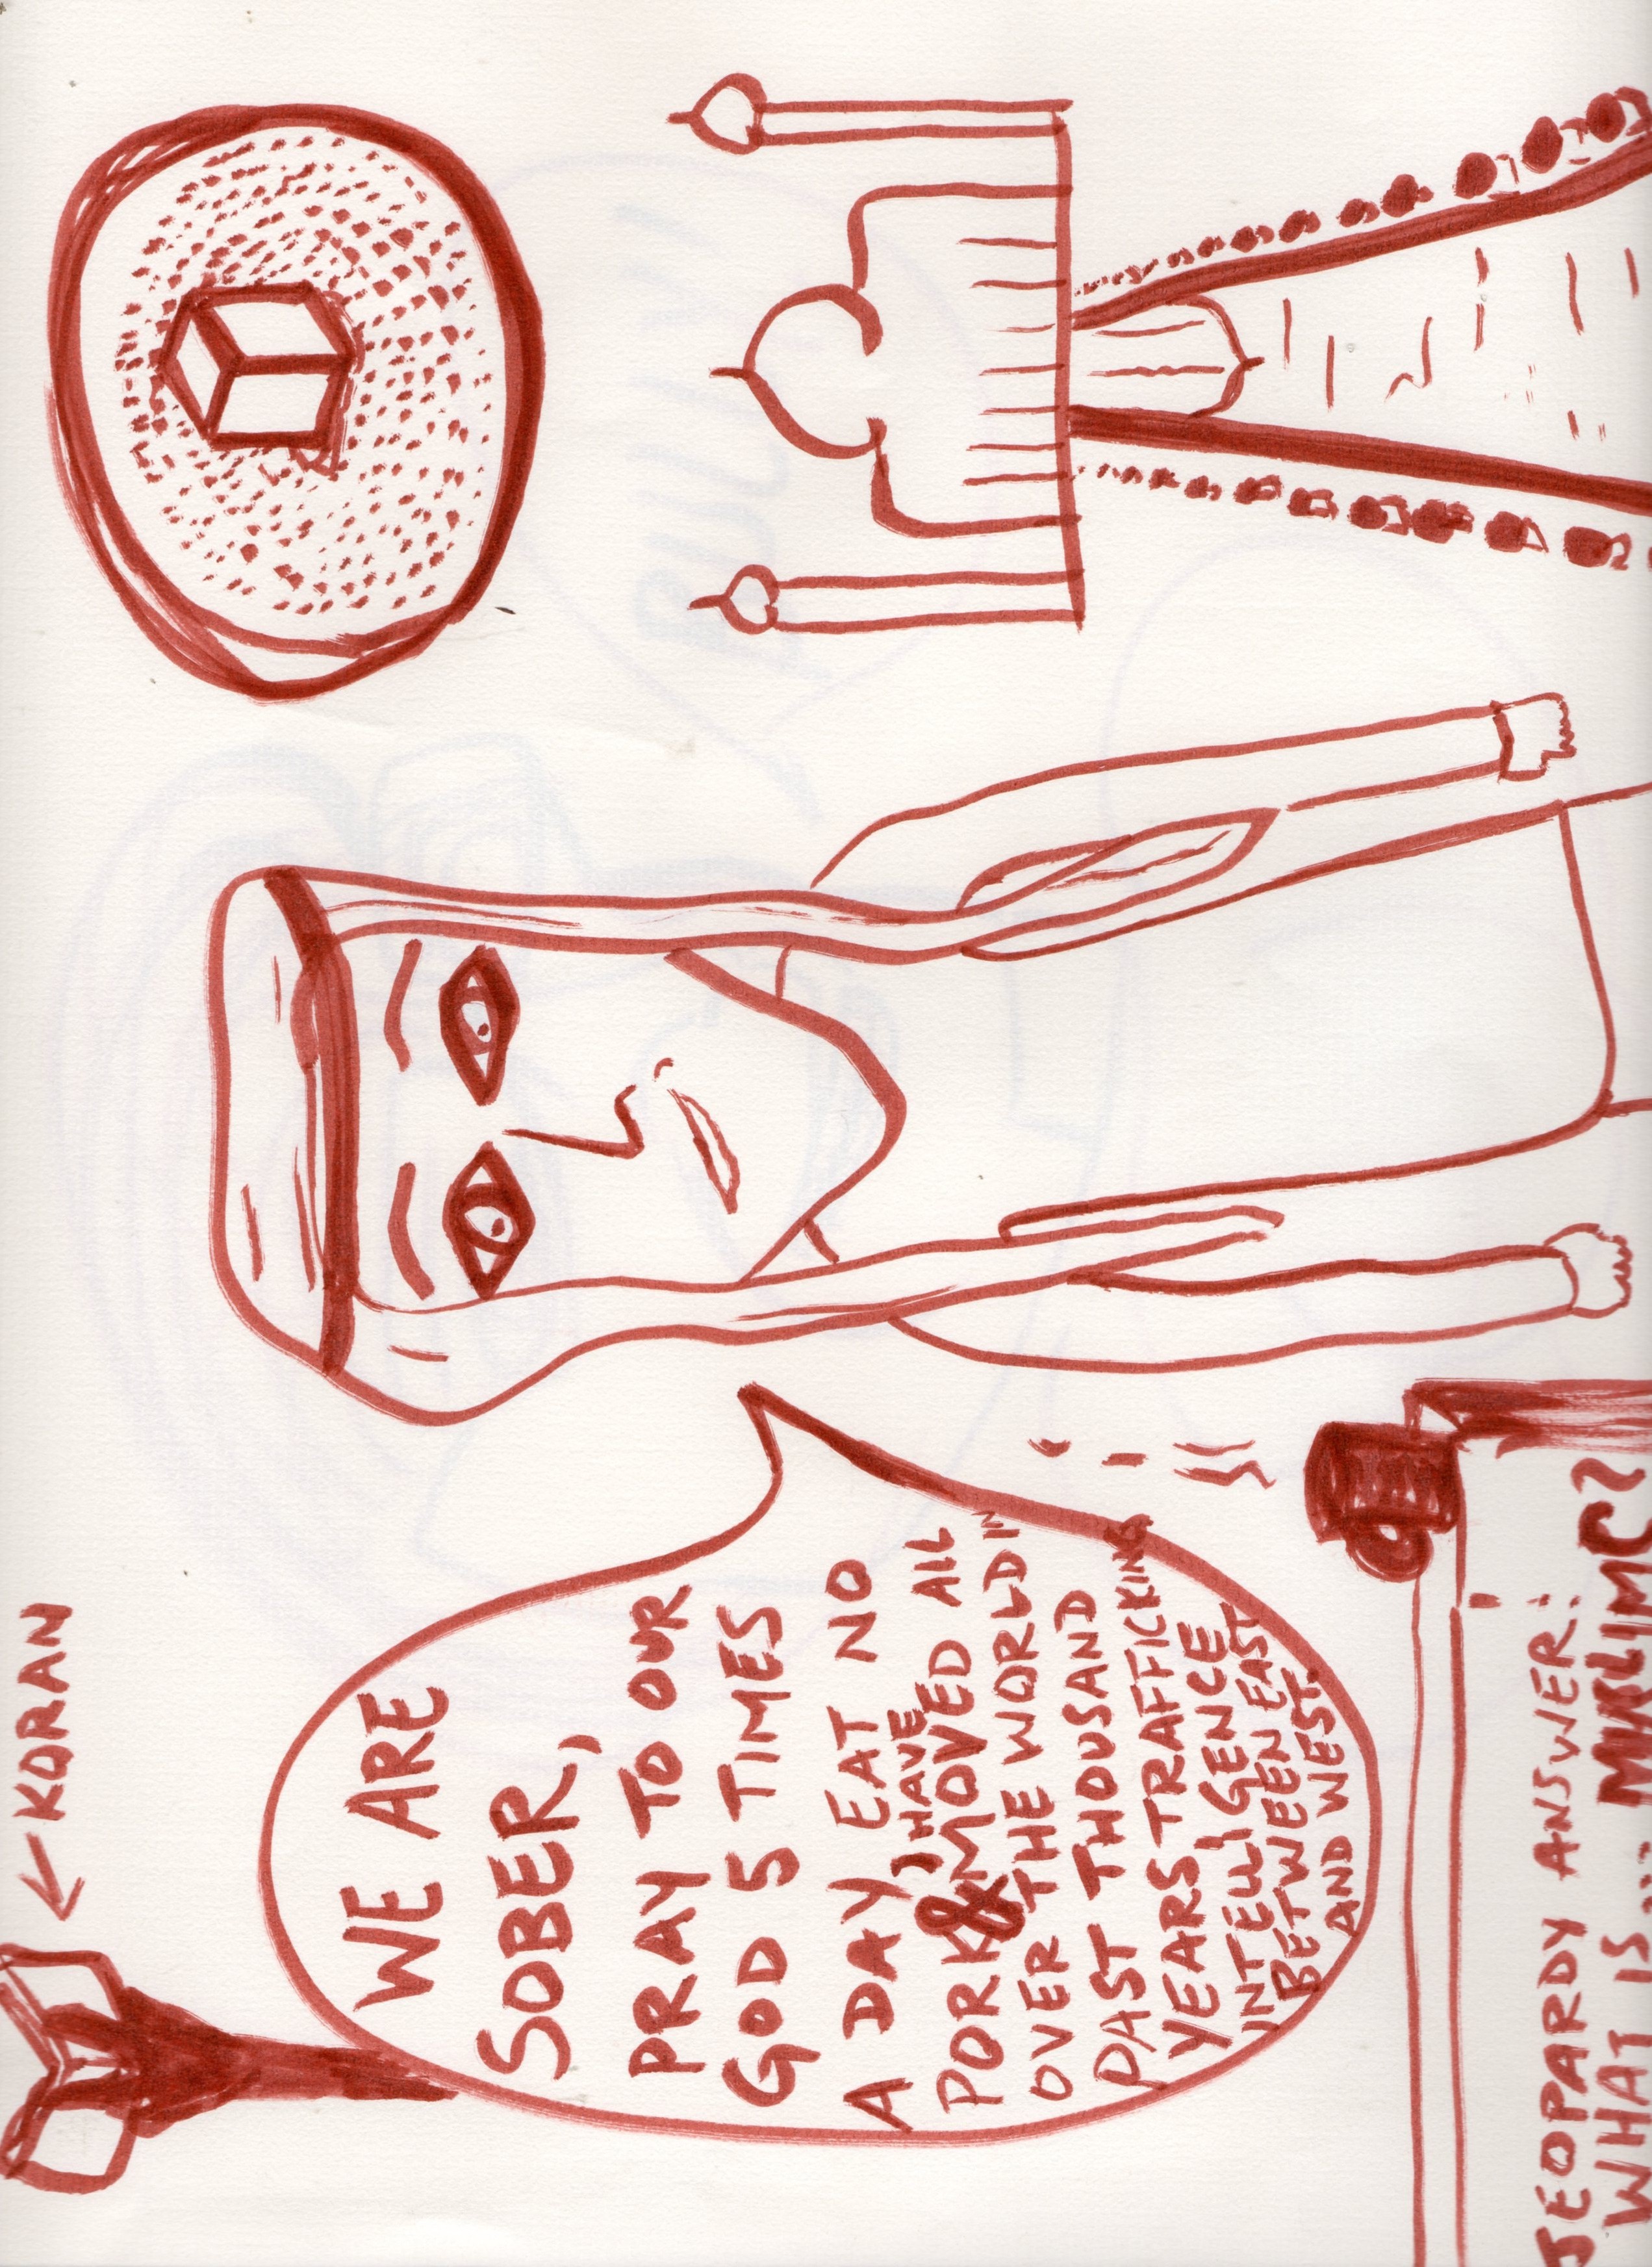 KORAN
WE ARE
SOBER,
PRAY TO OUR
GOD 5 TIMES
A DAY, EAT NO
HAVE
PORK & MOVED ALL
OVER THE WORLD IN
PAST THOUSAND
YEARS TRAFFICKING
INTELLIGENCE
BETWEEN EAST
AND WEST.
JEOPARDY ANSWER:
WHAT IS...